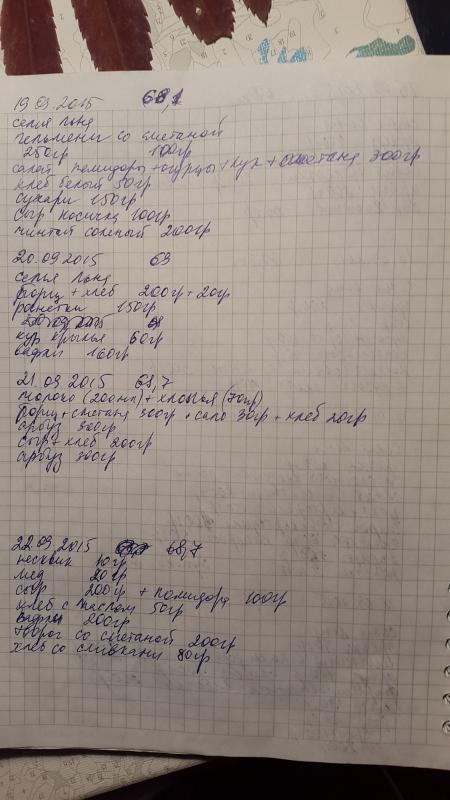 19.09.2015 68,1
семя льна
пельмени со сметаной
250гр 100гр
салат помидоры+огурцы+лук+сметана 300гр
хлеб белый 50гр
сухари 150гр
сыр косичка 100гр
минтай соленый 200гр
20.09.2015 69
семя льна
борщ + хлеб 200гр+20гр
ранетки 150гр
кур крылья 60гр
вафли 160гр
21.09 2015 68,7
молоко (200мл)+хлопья (70гр)
борщ+сметана 300гр +сало 30гр +хлеб 20гр
арбуз 300гр
сыр+хлеб 200гр
арбуз 300гр
22.09.2015 68,7
несквик 10гр
мед 20гр
сыр 200гр + помидора 100гр
хлеб с маслом 50гр
вафли 200гр
творог со сметаной 200гр
хлеб со сливками 80гр